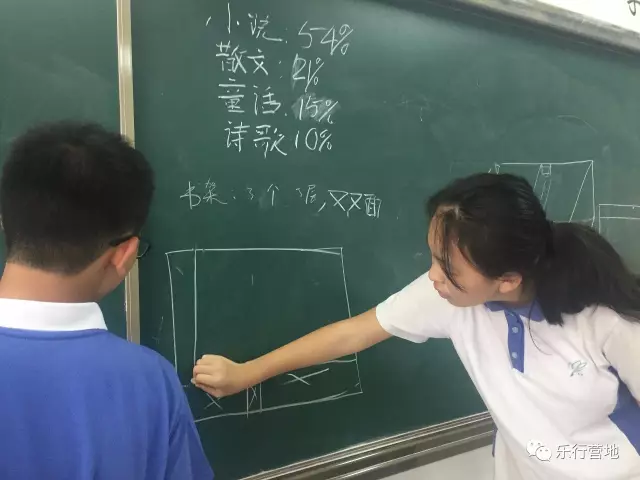 小说:54%
散文:21%
童话:15%
诗歌10%
书架:3个 3层,双面
乐行营地